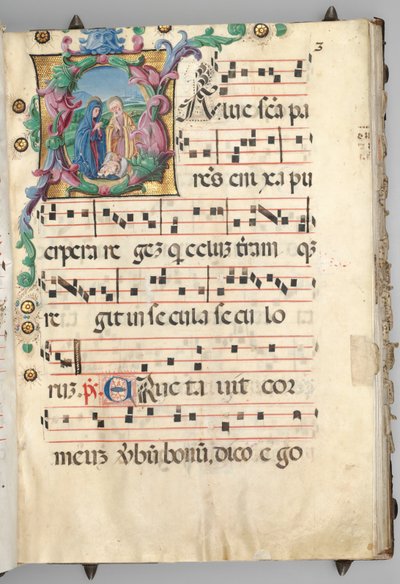 3
SAlue sc̄a pa
rēs eni xa pu
erpera re geʒ q̄ celuʒ t̄ram qʒ
re git in se cula se cu lo
ruʒ. p̄s. ERuc ta uit cor
meuʒ v̄bū bonū, dico e go